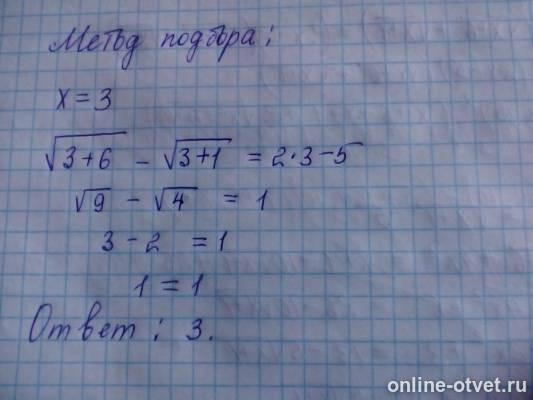 Метод подбора:
x = 3
√3+6 - √3+1 = 2·3-5
√9 - √4 = 1
3 - 2 = 1
1 = 1
Ответ: 3.
online-otvet.ru